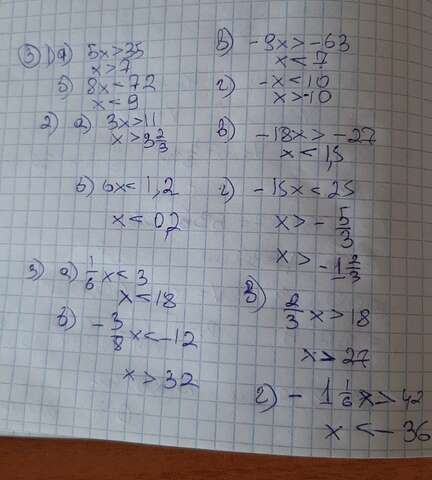 ③ 1) а) 5x>35
x>7
б) 8x<72
x<9
в) -9x>-63
x<7
г) -x<10
x>-10
2) а) 3x>11
x>3 2/3
б) 6x<1,2
x<0,2
в) -18x>-27
x<1,5
г) -15x<25
x>-5/3
x>-1 2/3
3) а) 1/6 x<3
x<18
б) -3/8 x<-12
x>32
в) 2/3 x>18
x>27
г) -1 1/6 x>42
x<-36